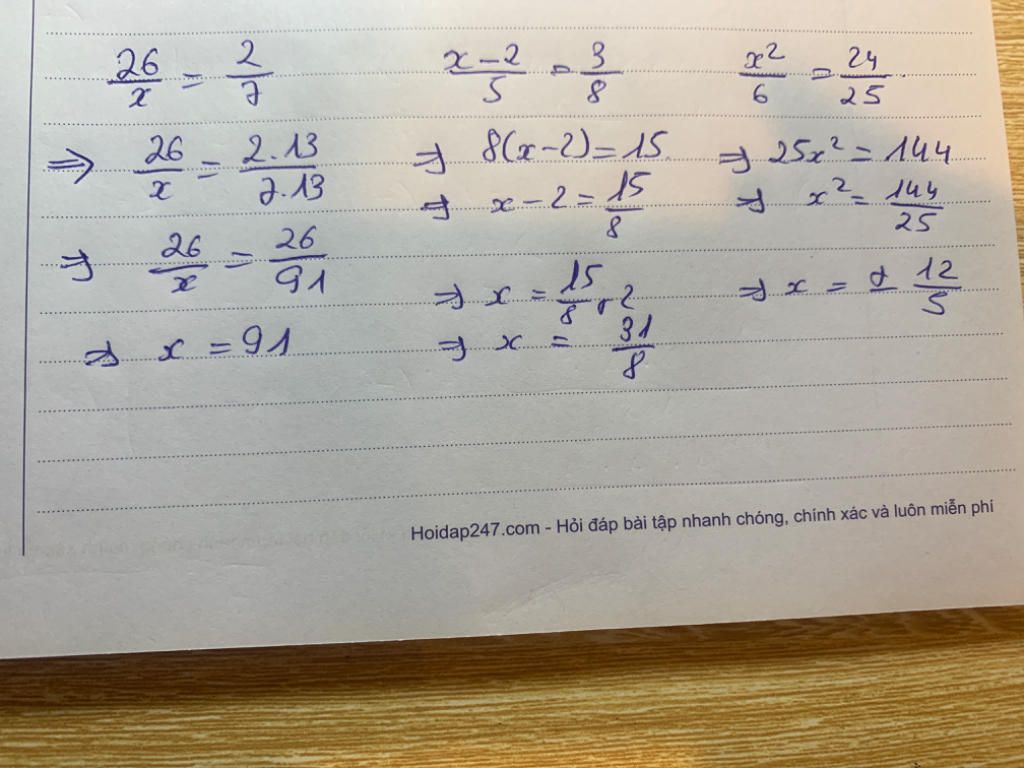 26/x = 2/7
⇒ 26/x = 2.13/7.13
⇒ 26/x = 26/91
⇒ x = 91
x-2/5 = 3/8
⇒ 8(x-2) = 15
⇒ x-2 = 15/8
⇒ x = 15/8 + 2
⇒ x = 31/8
x²/6 = 24/25
⇒ 25x² = 144
⇒ x² = 144/25
⇒ x = ± 12/5
Hoidap247.com - Hỏi đáp bài tập nhanh chóng, chính xác và luôn miễn phí